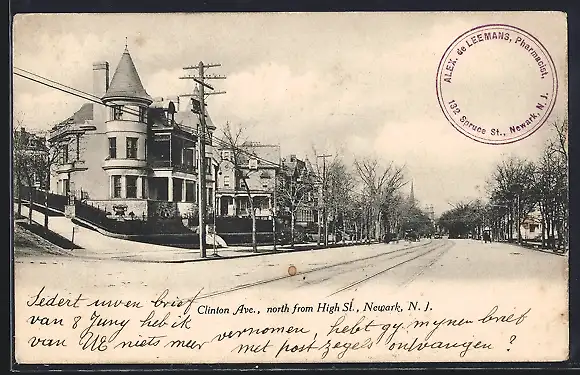 ALEX. de LEEMANS, Pharmacist,
132 Spruce St., Newark, N. J.
Clinton Ave., north from High St., Newark, N. J.
Sedert uwen brief
van 8 Juny heb ik
van UE niets meer vernomen, hebt gy mynen brief
met postzegels ontvangen?